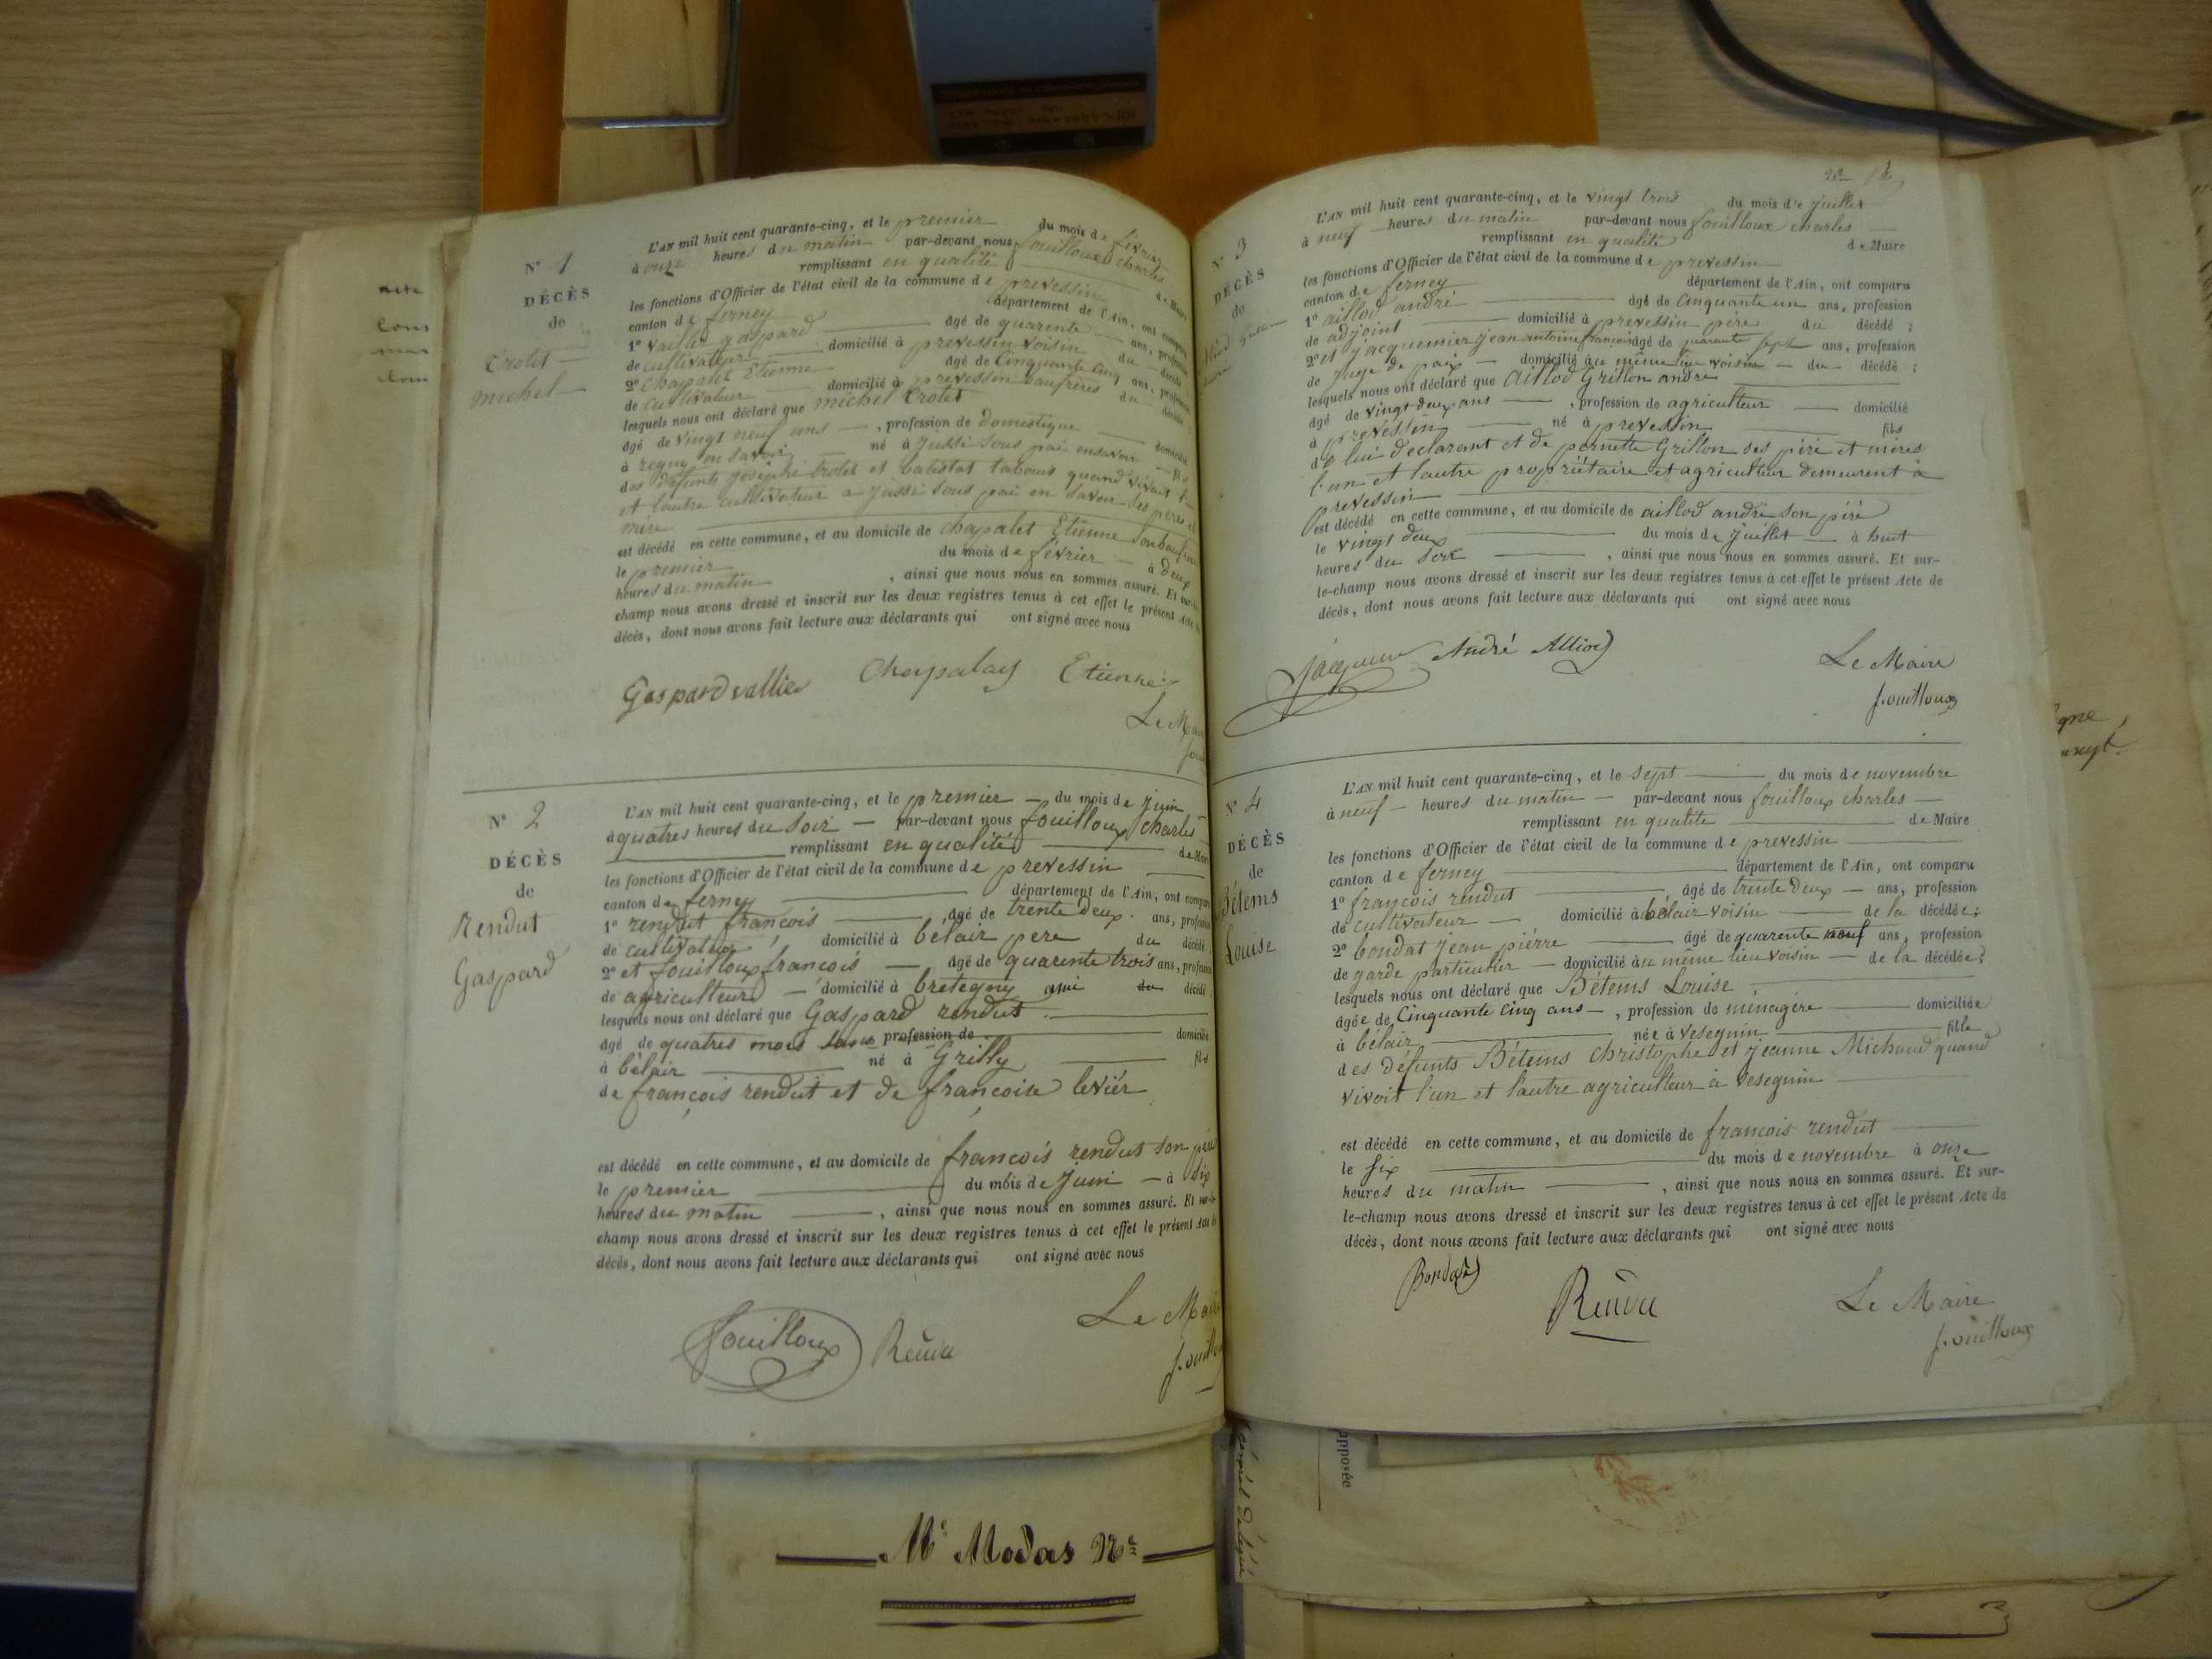 N° 1
DÉCÈS
de
Trolet
michel
L'AN mil huit cent quarante-cinq, et le premier du mois de février
à onze heures du matin par-devant nous fouilloux charles
remplissant en qualité de Maire
les fonctions d'Officier de l'état civil de la commune de prevessin
canton de ferney département de l'Ain, ont comparu
1° gaspard âgé de quarente ans, profession
de cultivateur domicilié à prevessin voisin du décédé
2° chapalet Etienne âgé de Cinquante Cinq ans, profession
de cultivateur domicilié à prevessin baufrères du décédé
lesquels nous ont déclaré que michel trolet
âgé de vingt neuf ans, profession de domestique domicilié
à en savoir né à jussi sous en savoir fils
des défunts trolet et quand vivait l'un
et lautre cultivateur a jussi sous en savoir ses pères et
mère
est décédé en cette commune, et au domicile de chapalet Etienne
le premier du mois de février à deux
heures du matin, ainsi que nous nous en sommes assuré. Et sur-le-
champ nous avons dressé et inscrit sur les deux registres tenus à cet effet le présent Acte de
décès, dont nous avons fait lecture aux déclarants qui ont signé avec nous
Gaspard vallier Chapalay Etienne
Le Maire
N° 2
DÉCÈS
de
Rendut
Gaspard
L'AN mil huit cent quarante-cinq, et le premier du mois de juin
à quatres heures du soir par-devant nous fouilloux charles
remplissant en qualité de Maire
les fonctions d'Officier de l'état civil de la commune de prevessin
canton de ferney département de l'Ain, ont comparu
1° rendut françois âgé de trente deux ans, profession
de cultivateur domicilié à bélair pere du décédé
2° et fouilloux francois âgé de quarente trois ans, profession
de agriculteur domicilié à bretegny ami du décédé
lesquels nous ont déclaré que Gaspard rendut
âgé de quatres mois sans profession de domicilié
à bélair né à Grilly fils
de françois rendut et de francoise levier
est décédé en cette commune, et au domicile de françois rendut son père
le premier du mois de juin à dix
heures du matin, ainsi que nous nous en sommes assuré. Et sur-le-
champ nous avons dressé et inscrit sur les deux registres tenus à cet effet le présent Acte de
décès, dont nous avons fait lecture aux déclarants qui ont signé avec nous
fouilloux Rendu
Le Maire
N° 3
DÉCÈS
de
L'AN mil huit cent quarante-cinq, et le vingt trois du mois de juillet
à neuf heures du matin par-devant nous fouilloux charles
remplissant en qualité de Maire
les fonctions d'Officier de l'état civil de la commune de prevessin
canton de ferney département de l'Ain, ont comparu
1° aillod andré âgé de Cinquante un ans, profession
de adjoint domicilié à prevessin père du décédé;
2° et jacquemier jean antoine françois âgé de quarante sept ans, profession
de juge de paix domicilié au même lieu voisin du décédé;
lesquels nous ont déclaré que Aillod Grillon andre
âgé de vingt deux ans, profession de agriculteur domicilié
à prevessin né à prevessin fils
de lui declarant et de pernette Grillon ses père et mères
l'un et lautre propriétaire et agriculteur demeurent à
prevessin
est décédé en cette commune, et au domicile de aillod andré son père
le vingt deux du mois de juillet à huit
heures du soir, ainsi que nous nous en sommes assuré. Et sur-
le-champ nous avons dressé et inscrit sur les deux registres tenus à cet effet le présent Acte de
décès, dont nous avons fait lecture aux déclarants qui ont signé avec nous
André Alliod
Le Maire
fouilloux
N° 4
DÉCÈS
de
Bétems
Louise
L'AN mil huit cent quarante-cinq, et le sept du mois de novembre
à neuf heures du matin par-devant nous fouilloux charles
remplissant en qualité de Maire
les fonctions d'Officier de l'état civil de la commune de prevessin
canton de ferney département de l'Ain, ont comparu
1° françois rendut, âgé de trente deux ans, profession
de cultivateur domicilié à bélair voisin de la décédée;
2° bondat jean piérre âgé de quarente neuf ans, profession
de garde particulier domicilié au même lieu voisin de la décédée;
lesquels nous ont déclaré que Bétems Louise
âgée de Cinquante cinq ans, profession de ménagère domiciliée
à bélair née à veseguin fille
des défunts Bétems christophe et jeanne Michaud quand
vivoit l'un et lautre agriculteur à veseguin
est décédé en cette commune, et au domicile de françois rendut
le six du mois de novembre à onze
heures du matin, ainsi que nous nous en sommes assuré. Et sur-
le-champ nous avons dressé et inscrit sur les deux registres tenus à cet effet le présent Acte de
décès, dont nous avons fait lecture aux déclarants qui ont signé avec nous
Bondat Rendu
Le Maire
fouilloux
apposée
Me Modas Nre